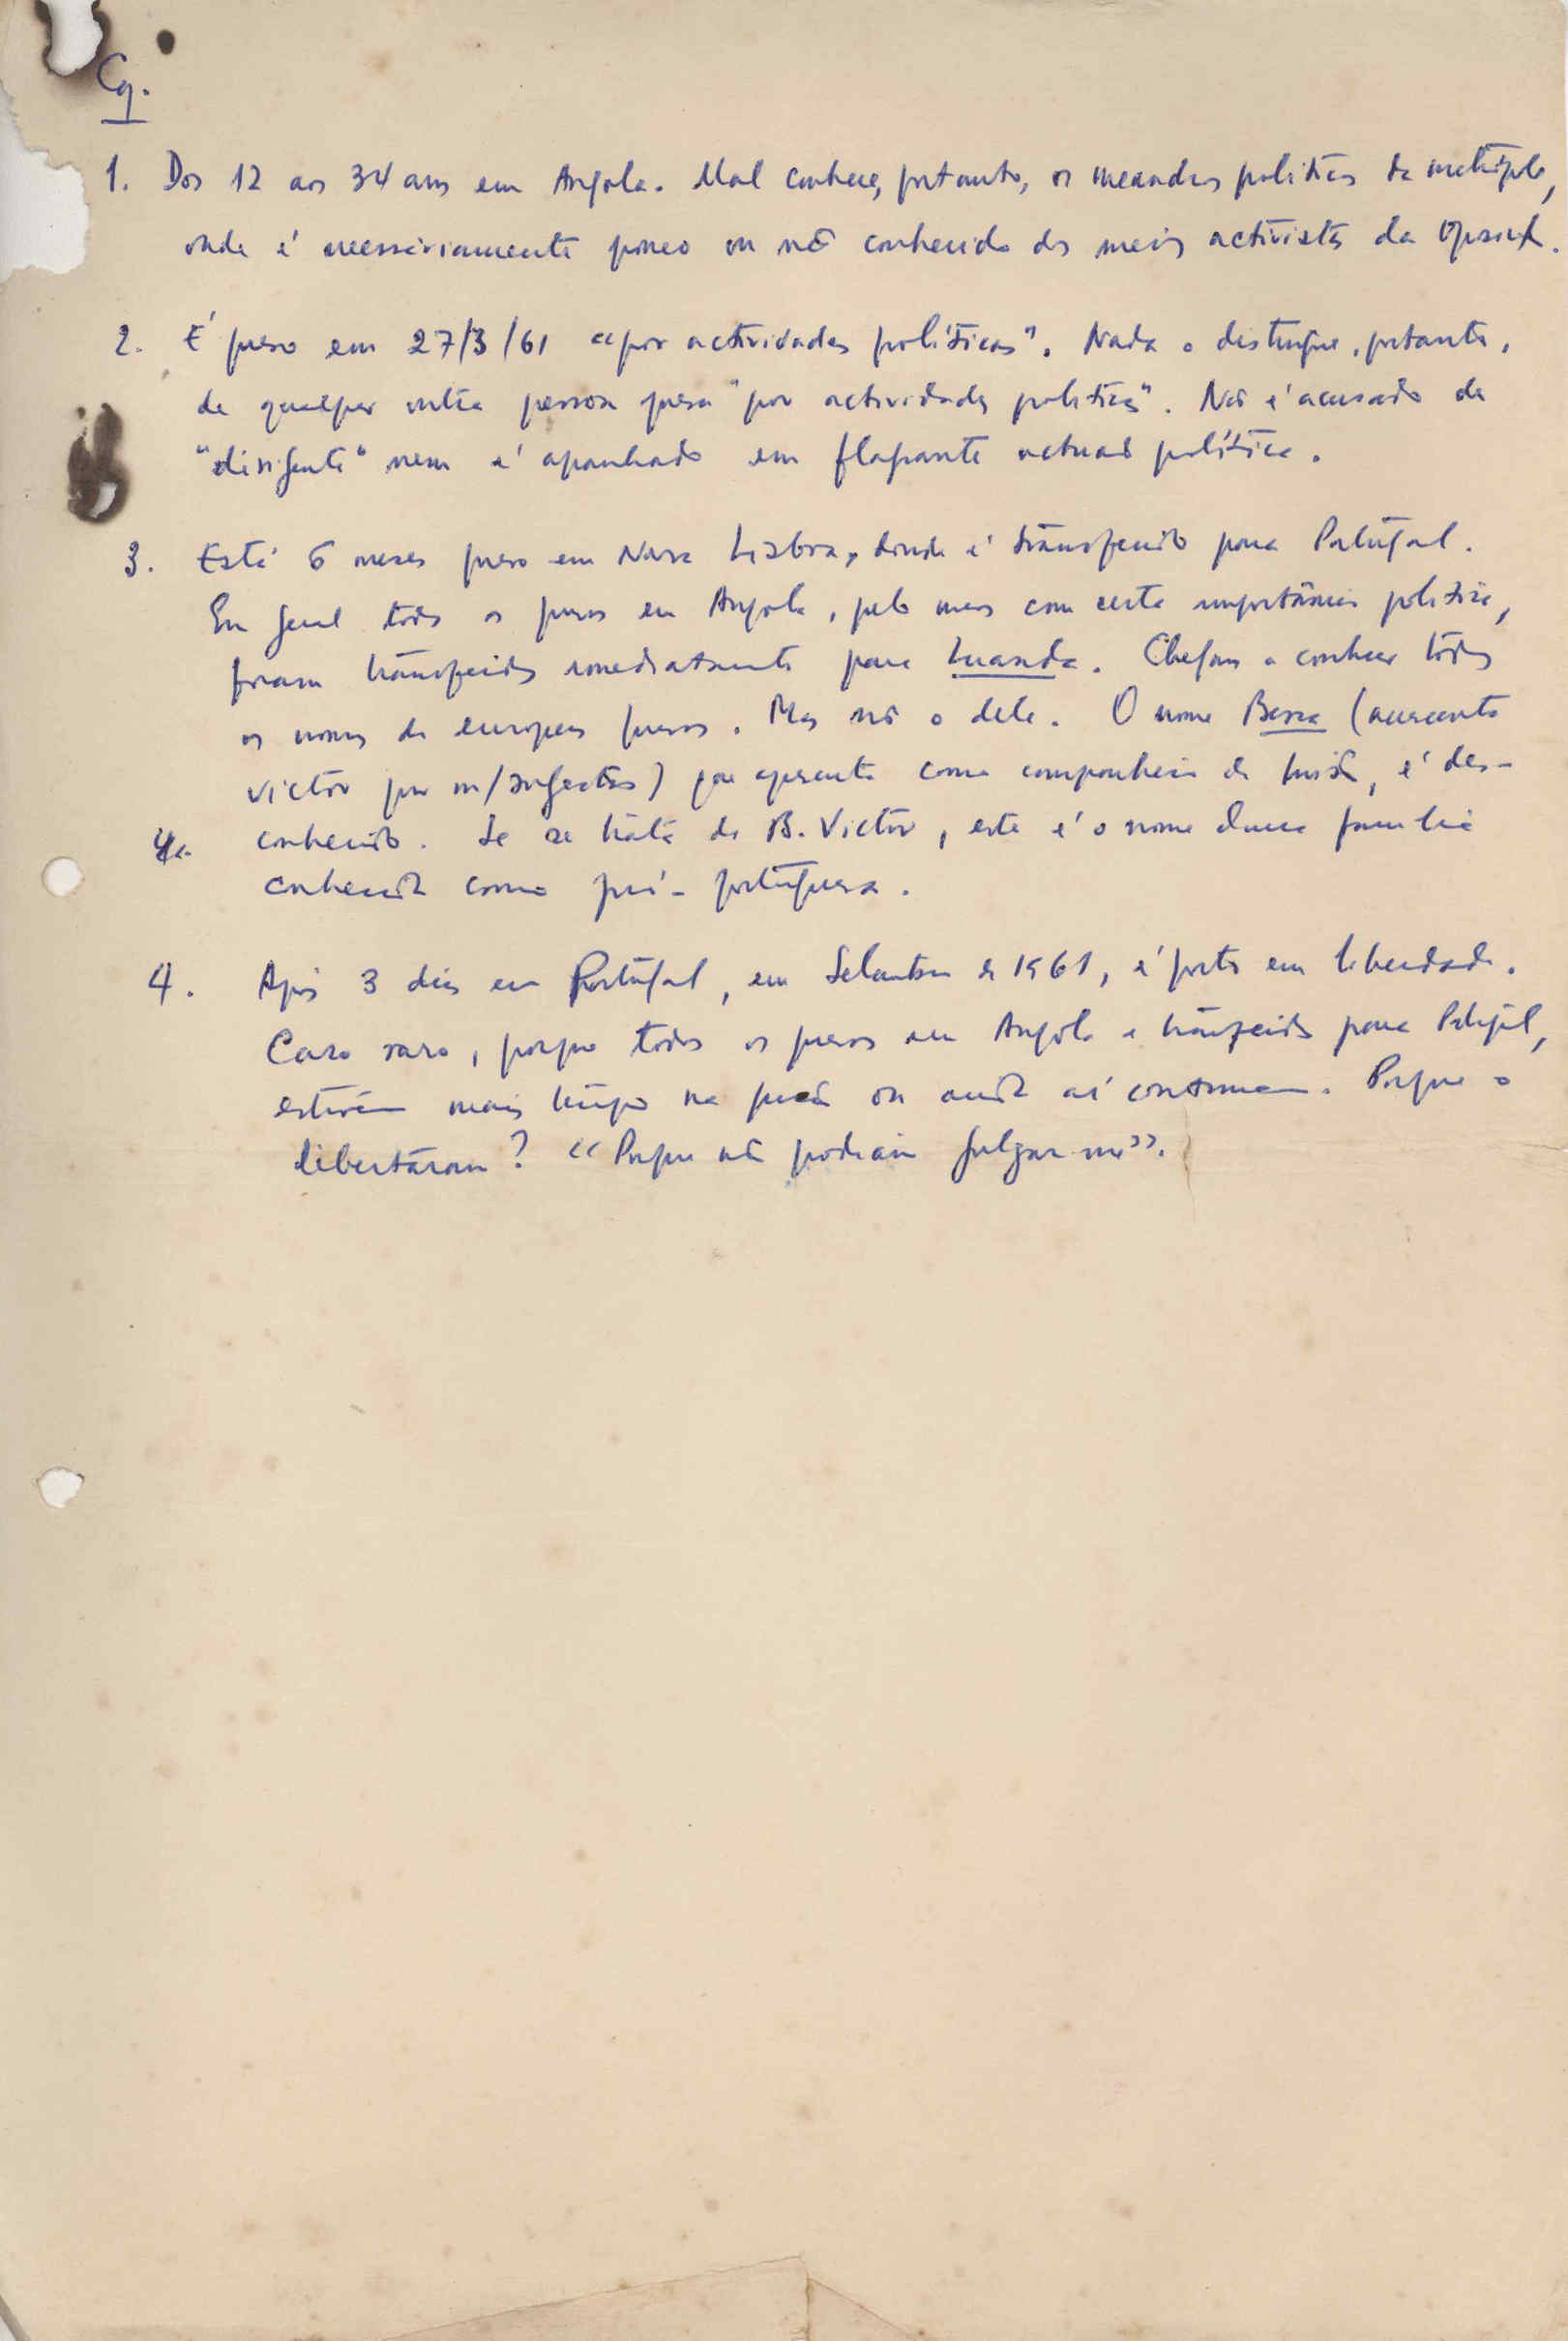 Cg.
1. Dos 12 aos 34 anos em Angola. Mal conhece, portanto, os meandros políticos da metrópole,
onde é necessàriamente pouco ou não conhecido dos meios activistas da Oposição.
2. É preso em 27/3/61 "por actividades políticas". Nada o distingue, portanto,
de qualquer outra pessoa presa "por actividades políticas". Não é acusado de
"dirigente" nem é apanhado em flagrante actuação política.
3. Está 6 meses preso em Nova Lisboa, donde é transferido para Portugal.
Em geral todos os presos em Angola, pelo menos com certa importância política,
foram transferidos imediatamente para Luanda. Chegam a conhecer todos
os nomes de europeus presos. Mas não o dele. O nome Bessa (acrescenta
Victor por m/sugestão) que apresenta como companheiro de prisão, é des-
conhecido. Se se trata de B. Victor, este é o nome duma família
conhecida como pró-portuguesa.
4. Após 3 dias em Portugal, em Setembro de 1961, é posto em liberdade.
Caso raro, porque todos os presos em Angola e transferidos para Portugal,
estiveram mais tempo na prisão ou ainda aí continuam. Porque o
libertaram? «Porque não podiam julgar-me».